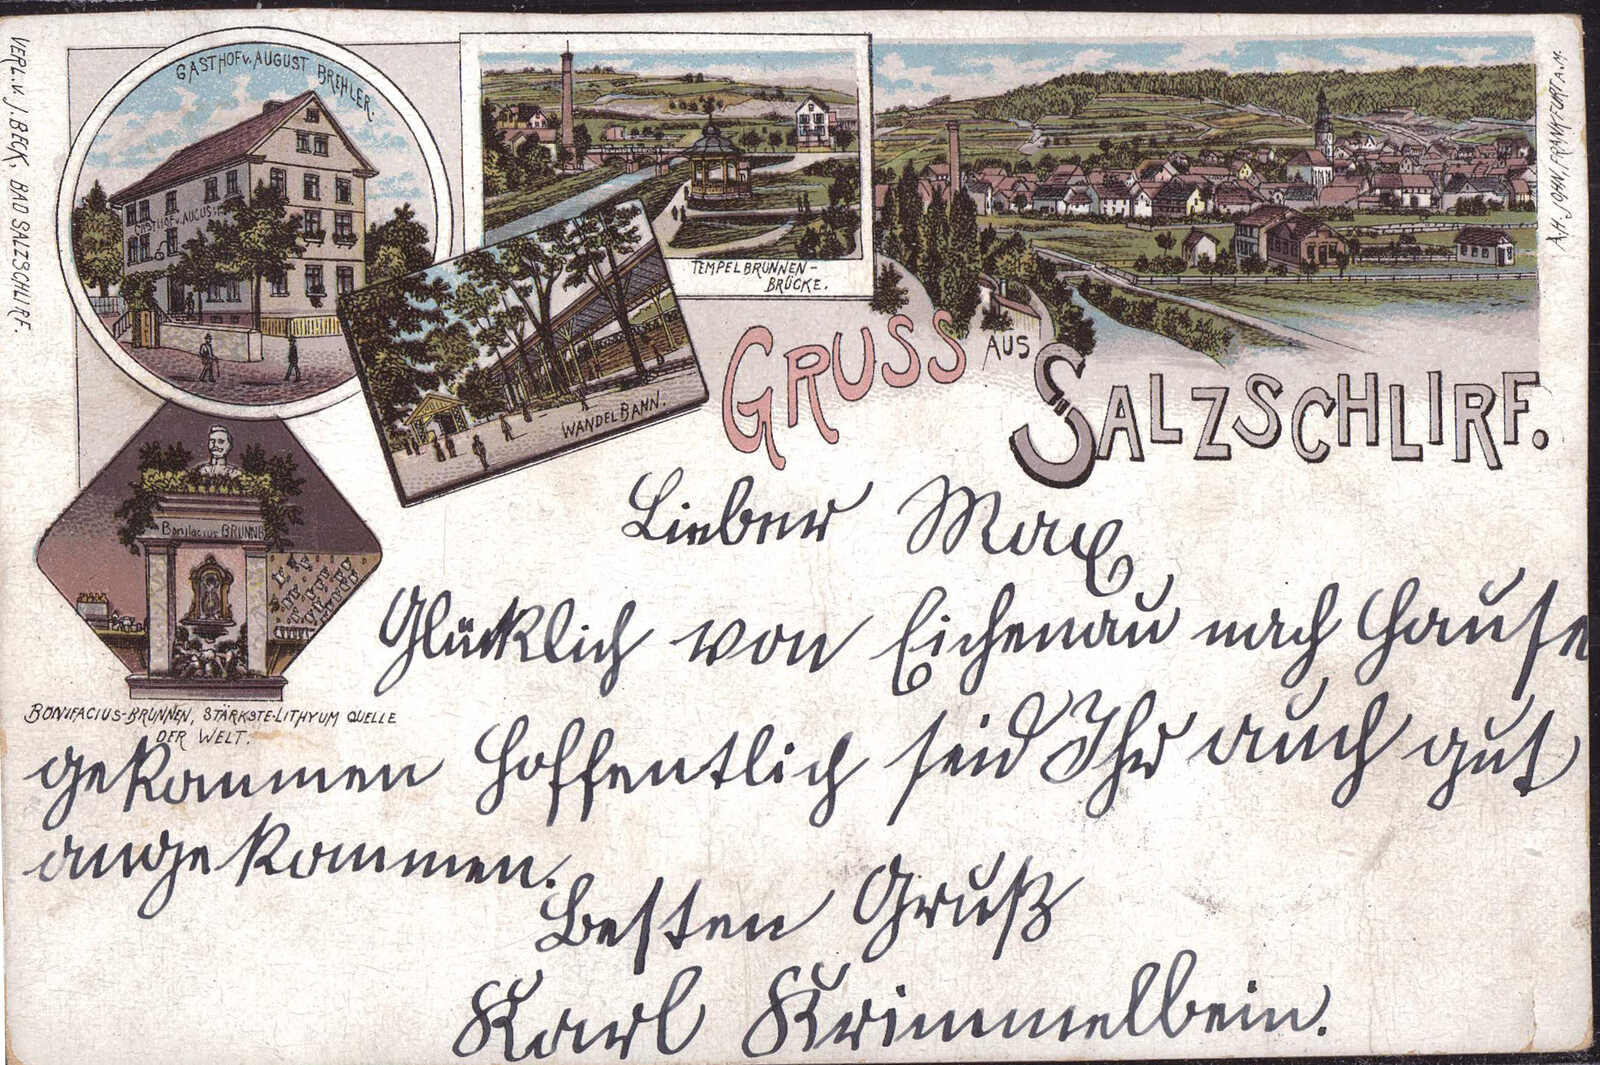 VERL. v. J. BECK, BAD SALZSCHLIRF.
GASTHOF v. AUGUST BREHLER.
GASTHOF v. AUGUST
TEMPELBRUNNEN-
BRÜCKE.
WANDELBAHN.
GRUSS AUS SALZSCHLIRF.
Bonifacius BRUNNE
BONIFACIUS-BRUNNEN, STÄRKSTE-LITHYUM QUELLE
DER WELT.
Lieber Max
Glücklich von Eichenau nach Hause
gekommen Hoffentlich seid Ihr auch gut
angekommen.
Besten Gruß
Karl Krimmelbein.